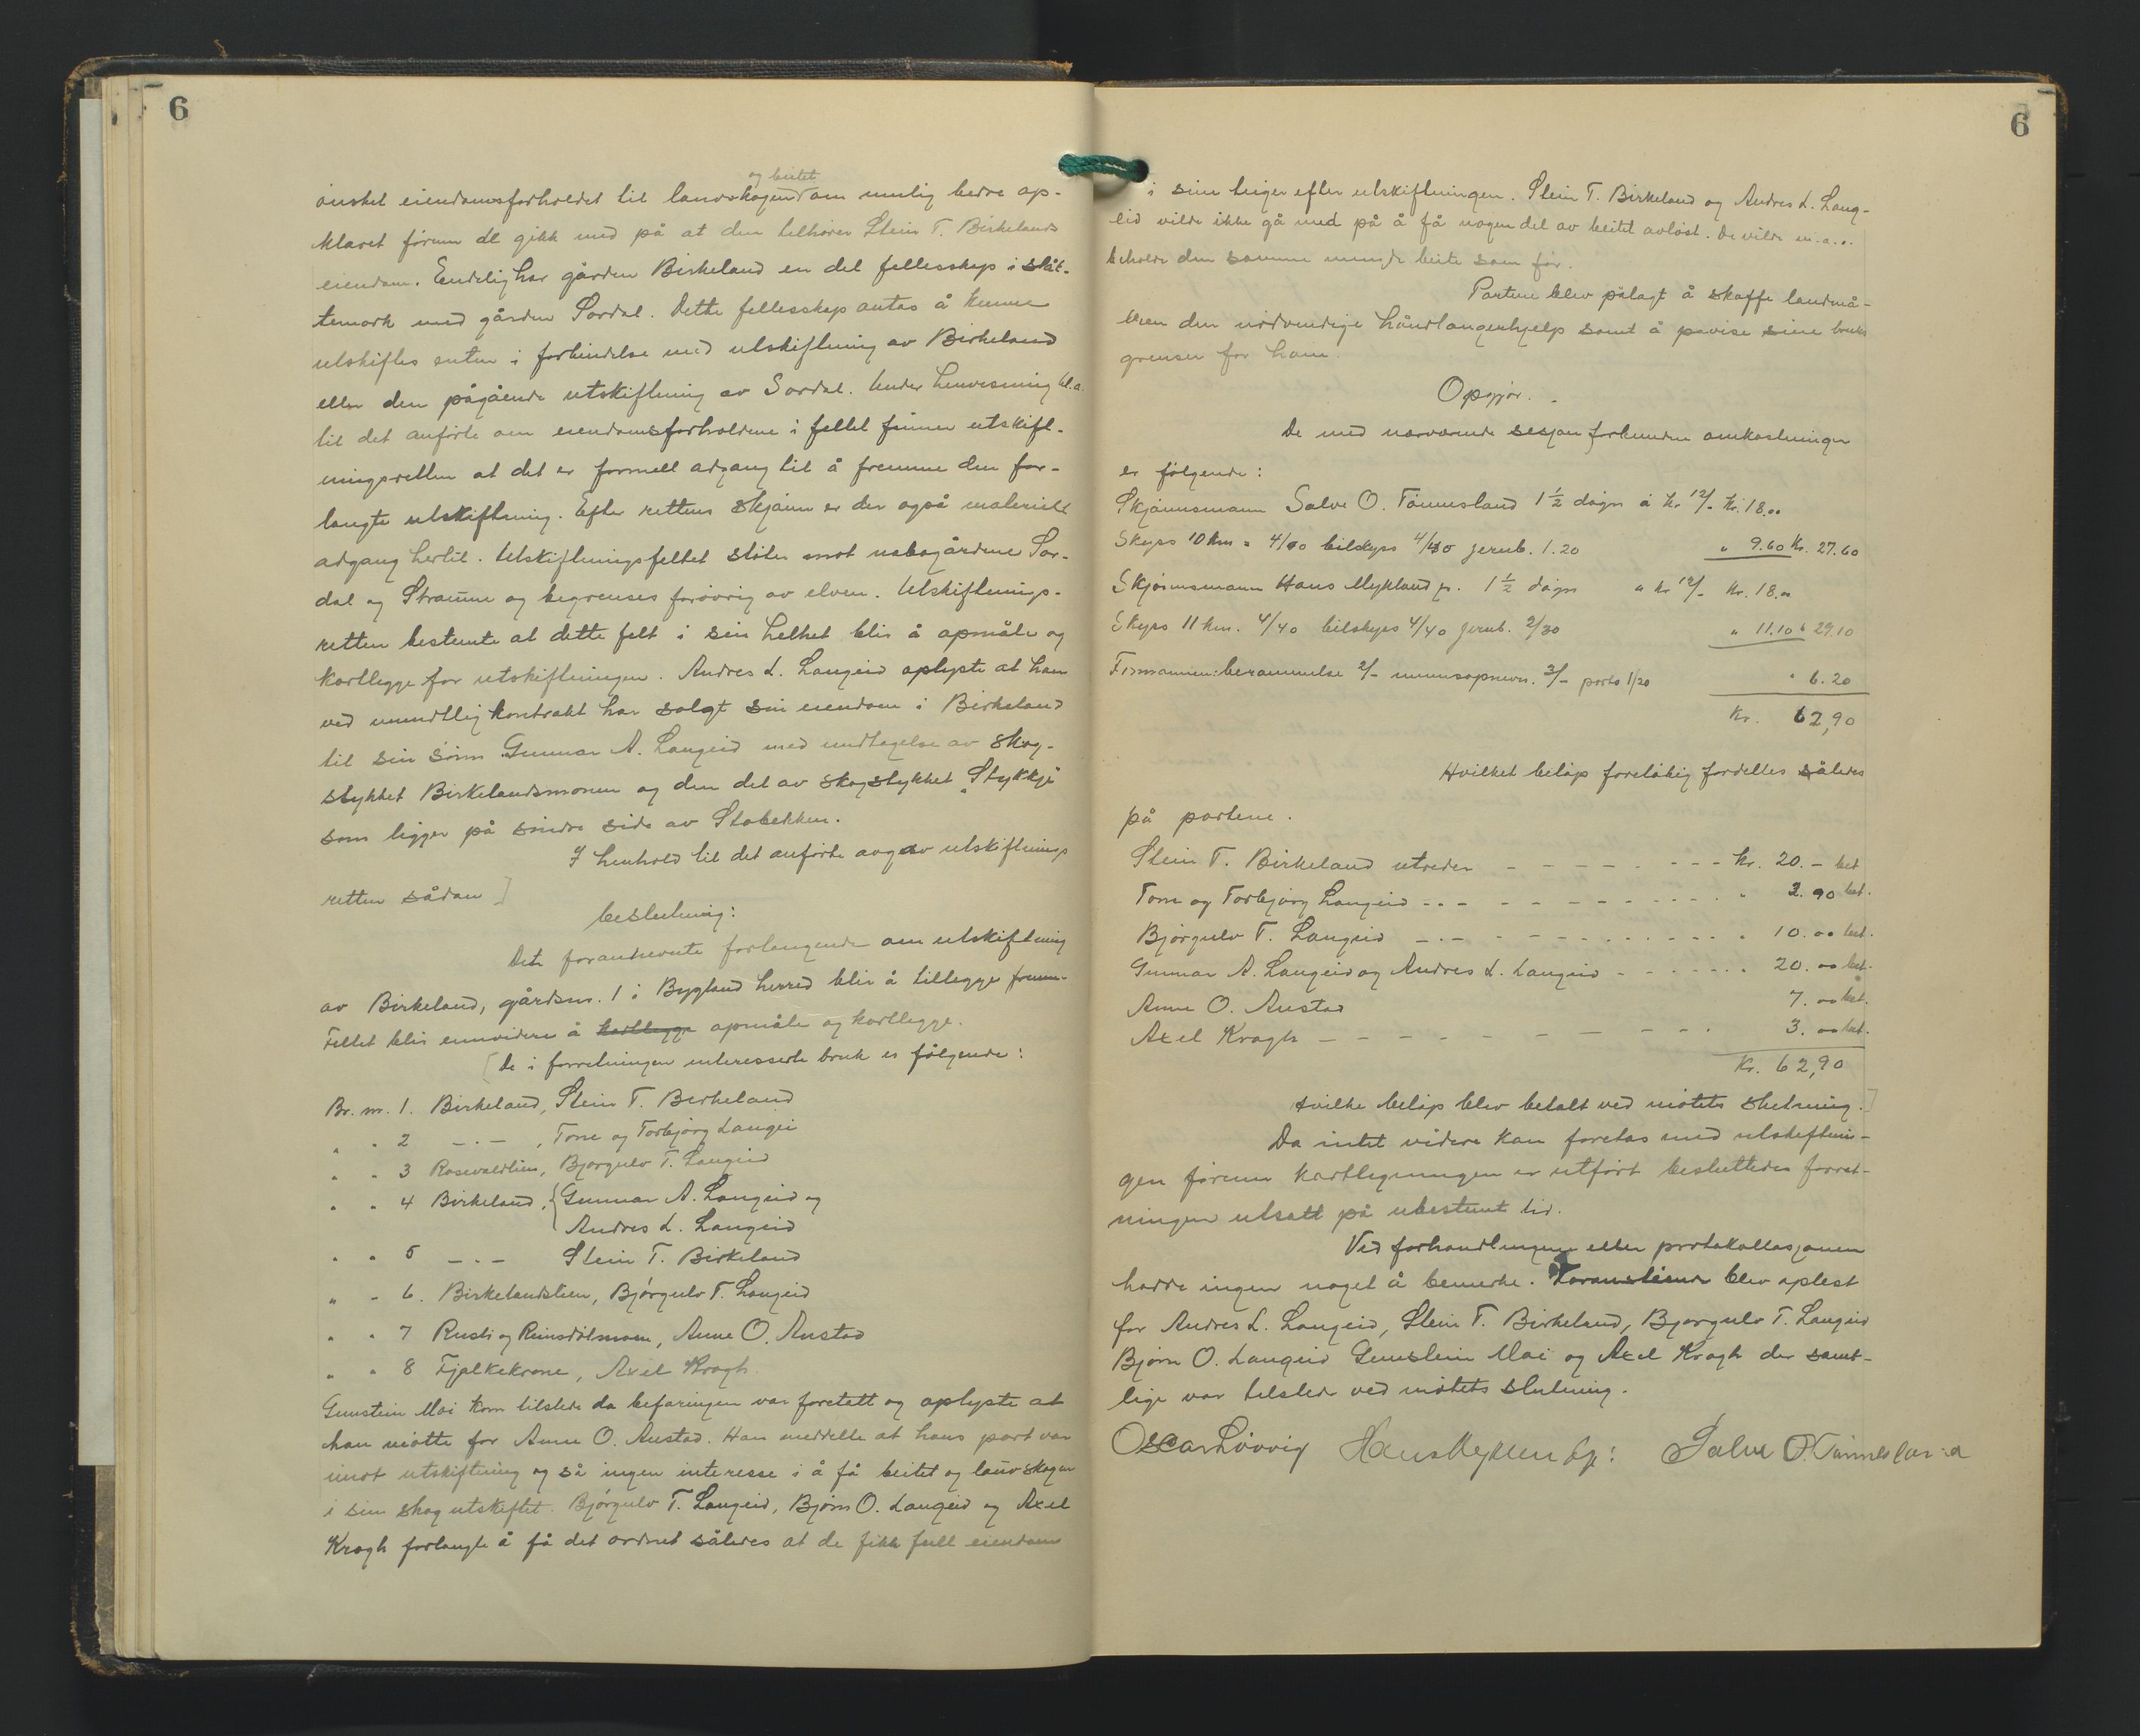 6
og beitet
ønsket eiendomsforholdet til lauvskogen om mulig bedre op-
klaret førenn de gikk med på at den tilhører Stein T. Birkelands
eiendom. Endelig har gården Birkeland en del fellesskap i slåt-
temark med gården Sordal. Dette fellesskap antas å kunne
utskiftes enten i forbindelse med utskiftning av Birkeland
eller den pågående utskiftning av Sordal. Under henvisning bl.a.
til det anførte om eiendomsforholdene i feltet finner utskift-
ningsretten at det er formell adgang til å fremme den for-
langte utskiftning. Efter rettens skjønn er der også materiell
adgang hertil. Utskiftningsfeltet støter mot nabogårdene Sor-
dal og Straume og begrenses forøvrig av elven. Utskiftnings-
retten bestemte at dette felt i sin helhet blir å opmåle og
kartlegge for utskiftningen. Andres L. Langeid oplyste at han
ved muntlig kontrakt har solgt sin eiendom i Birkeland
til sin sønn Gunnar A. Langeid med undtagelse av skog-
stykket Birkelandsmonen og den del av skogstykket "Stykkje"
som ligger på søndre side av Stobekken.
I henhold til det anførte avgav utskiftnings
retten sådan ]
beslutning:
Det forannevnte forlangende om utskiftning
av Birkeland, gårdsnr. 1 i Bygland herred blir å tillegge frem-
Feltet blir ennvidere å kartlegge opmåle og kartlegge.
[De i forretningen interesserte bruk er følgende:
Br. nr. 1. Birkeland, Stein T. Birkeland
" " 2 -"- , Tone og Torbjørg Langei
" " 3 Rosevaldlien, Bjørgulv T. Langeid
" " 4 Birkeland, { Gunnar A. Langeid og
Andres L. Langeid
" " 5 -"- Stein T. Birkeland
" " 6. Birkelandslien, Bjørgulv T. Langeid
" " 7 Rusti og Rimsdølmoen, Anne O. Austad
" " 8 Fjalkekrone, Axel Kragh.
Gunstein Moi kom tilstede da befaringen var foretatt og oplyste at
han møtte for Anne O. Austad. Han meddelte at hans part var
imot utskiftning og så ingen interesse i å få beitet og lauvskogen
i sin skog utskiftet. Bjørgulv T. Langeid, Bjørn O. Langeid og Axel
Kragh forlangte å få det ordnet således at de fikk full eiendom
6
i sine teiger efter utskiftningen. Stein T. Birkeland og Andres L. Lang-
eid vilde ikke gå med på å få nogen del av beitet avløst. De vilde m.a.o.
beholde den samme mengde beite som før.
Partene blev pålagt å skaffe landmå-
leren den nødvendige håndlangerhjelp samt å påvise sine bruks
grenser for ham.
Opgjør.
De med nærværende sesjon forbundne omkostninger
er følgende:
Skjønnsmann Salve O. Tønnesland 1½ døgn à kr 12/- Kr. 18.00
Skyss 10 km = 4/00 bilskyss 4/40 jernb. 1.20 " 9.60 Kr. 27.60
Skjønnsmann Hans Mykland jr. 1½ døgn à kr 12/- Kr. 18.00
Skyss 11 km. 4/40 bilskyss 4/40 jernb. 2/30 " 11.10 " 29.10
Formannen: berammelse 2/- mannsopnevn. 3/- porto 1/20 " 6.20
Kr. 62,90
Hvilket beløp foreløbig fordeltes således
på partene.
Stein T. Birkeland utreder - - - - - - - - Kr. 20.- bet
Tone og Torbjørg Langeid - - - - - - - - - - " 2.90 bet.
Bjørgulv T. Langeid - - - - - - - - - - - " 10.00 bet.
Gunnar A. Langeid og Andres L. Langeid - - - - - - - 20.00 bet.
Anne O. Austad 7.00 bet.
Axel Kragh - - - - - - - - - - 3.00 bet.
Kr. 62,90
Hvilke beløp blev betalt ved møtets slutning.]
Da intet videre kan foretas med utskiftnin-
gen førenn kartlegningen er utført besluttedes forret-
ningen utsatt på ubestemt tid.
Ved forhandlingene eller protokollasjonen
hadde ingen noget å bemerke. Foranstående blev oplest
for Andres L. Langeid, Stein T. Birkeland, Bjørgulv T. Langeid
Bjørn O. Langeid Gunstein Moi og Axel Kragh der samt-
lige var tilstede ved møtets slutning.
Oscar Løvvig Hans Mykland jr: Salve O. Tønnesland